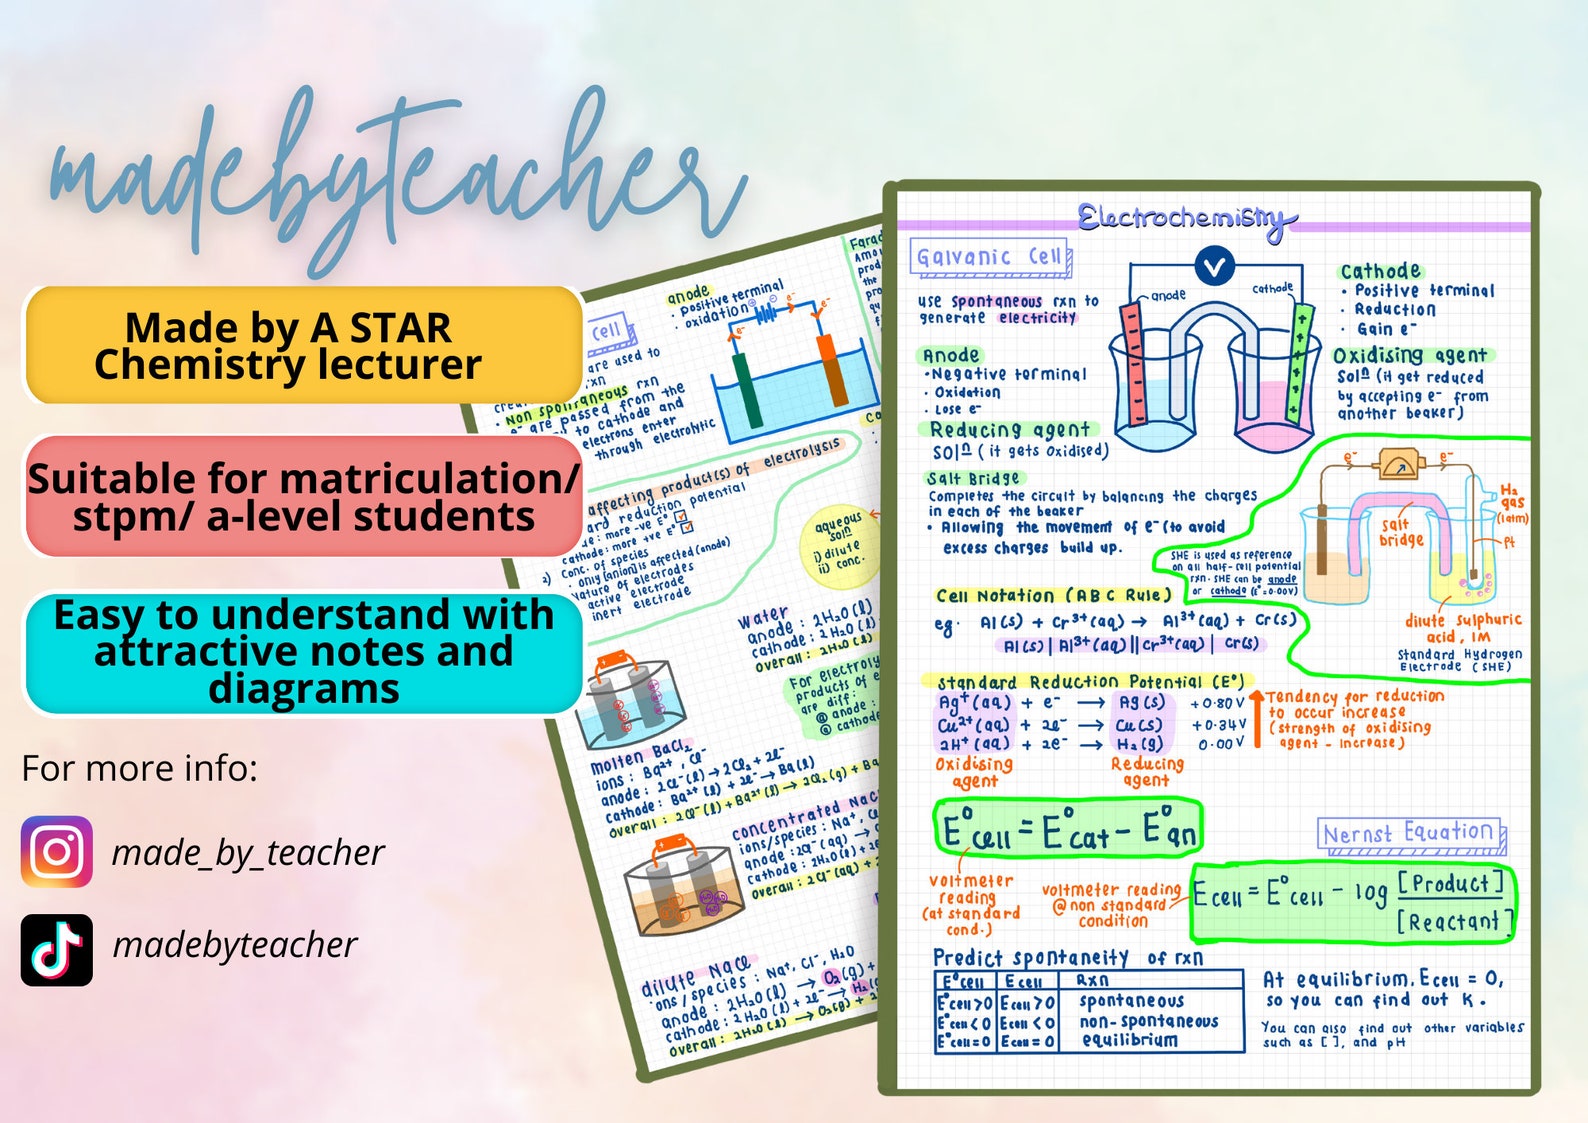 madebyteacher
Made by A STAR
Chemistry lecturer
Suitable for matriculation/
stpm/ a-level students
Easy to understand with
attractive notes and
diagrams
For more info:
made_by_teacher
madebyteacher
cell
are used to
rxn
Non spontaneous rxn
e⁻ are passed from the
to cathode and
electrons enter
through electrolytic
anode
· positive terminal
· oxidation
e⁻
e⁻
Farad
affecting product(s) of electrolysis
ard reduction potential
de: more -ve E°
cathode: more +ve E°
2) Conc. of species
· only (anion) is affected (anode)
Nature of electrodes
active electrode
inert electrode
aqueous
solⁿ
i) dilute
ii) conc.
Water
anode : 2H₂O (l)
cathode : 2H₂O (l)
Overall : 2H₂O (l)
For electroly
products of e
are diff:
@ anode :
@ cathode
molten BaCl₂
ions : Ba²⁺, Cl⁻
anode : 2Cl⁻(l) → 2Cl₂ + 2e⁻
cathode : Ba²⁺(l) + 2e⁻ → Ba(l)
Overall : 2Cl⁻(l) + Ba²⁺(l) → 2Cl₂(g) + Ba
concentrated NaCl
ions/species : Na⁺, Cl
anode : 2Cl⁻(aq) →
cathode : 2H₂O(l) + 2e
Overall : 2Cl⁻(aq) + 2
dilute NaCl
ions / species : Na⁺, Cl⁻, H₂O
anode : 2H₂O(l) → O₂(g) +
cathode : 2H₂O(l) + 2e⁻ → H₂(g)
Overall : 2H₂O(l) → O₂(g) + 2
Electrochemistry
Galvanic Cell
use spontaneous rxn to
generate electricity
Anode
· Negative terminal
· Oxidation
· Lose e⁻
Reducing agent
Solⁿ (it gets oxidised)
V
anode
cathode
Cathode
· Positive terminal
· Reduction
· Gain e⁻
Oxidising agent
Solⁿ (it get reduced
by accepting e⁻ from
another beaker)
Salt Bridge
Completes the circuit by balancing the charges
in each of the beaker
· Allowing the movement of e⁻ (to avoid
excess charges build up.
SHE is used as reference
on all half-cell potential
rxn. SHE can be anode
or cathode (E°=0.00V)
e⁻
e⁻
H₂
gas
(1atm)
salt
bridge
Pt
dilute sulphuric
acid, 1M
Standard Hydrogen
Electrode (SHE)
Cell Notation (ABC Rule)
eg. Al(s) + Cr³⁺(aq) → Al³⁺(aq) + Cr(s)
Al(s) | Al³⁺(aq) || Cr³⁺(aq) | Cr(s)
Standard Reduction Potential (E°)
Ag⁺(aq) + e⁻ → Ag(s) +0.80V
Cu²⁺(aq) + 2e⁻ → Cu(s) +0.34V
2H⁺(aq) + 2e⁻ → H₂(g) 0.00V
Oxidising
agent
Reducing
agent
Tendency for reduction
to occur increase
(strength of oxidising
agent - increase)
E°cell = E°cat - E°an
voltmeter
reading
(at standard
cond.)
Nernst Equation
voltmeter reading
@ non standard
condition
Ecell = E°cell - log [Product]
[Reactant]
Predict spontaneity of rxn
E°cell Ecell Rxn
E°cell >0 Ecell >0 spontaneous
E°cell <0 Ecell <0 non-spontaneous
E°cell =0 Ecell =0 equilibrium
At equilibrium, Ecell = 0,
so you can find out K.
You can also find out other variables
such as [ ], and pH